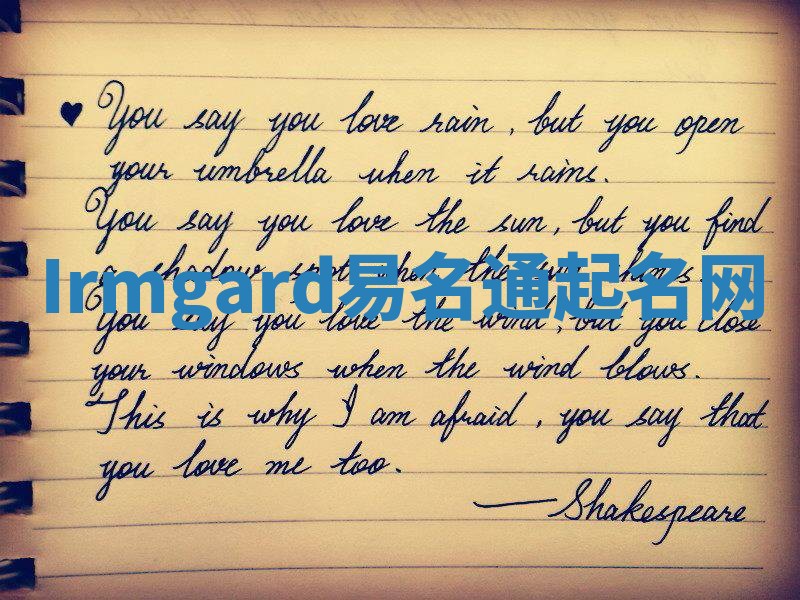 ♥ You say you love rain, but you open
your umbrella when it rains.
You say you love the sun, but you find
a shadow spot when the sun shines.
Irmgard易名通起名网
You say you love the wind, but you close
your windows when the wind blows.
This is why I am afraid, you say that
you love me too.
—Shakespeare